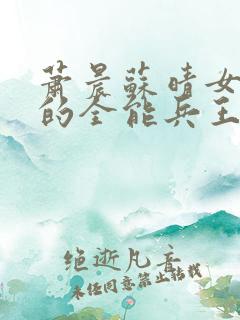 蕭晨蘇晴女
的全能兵王
绝逝凡音
未经同意禁止转载